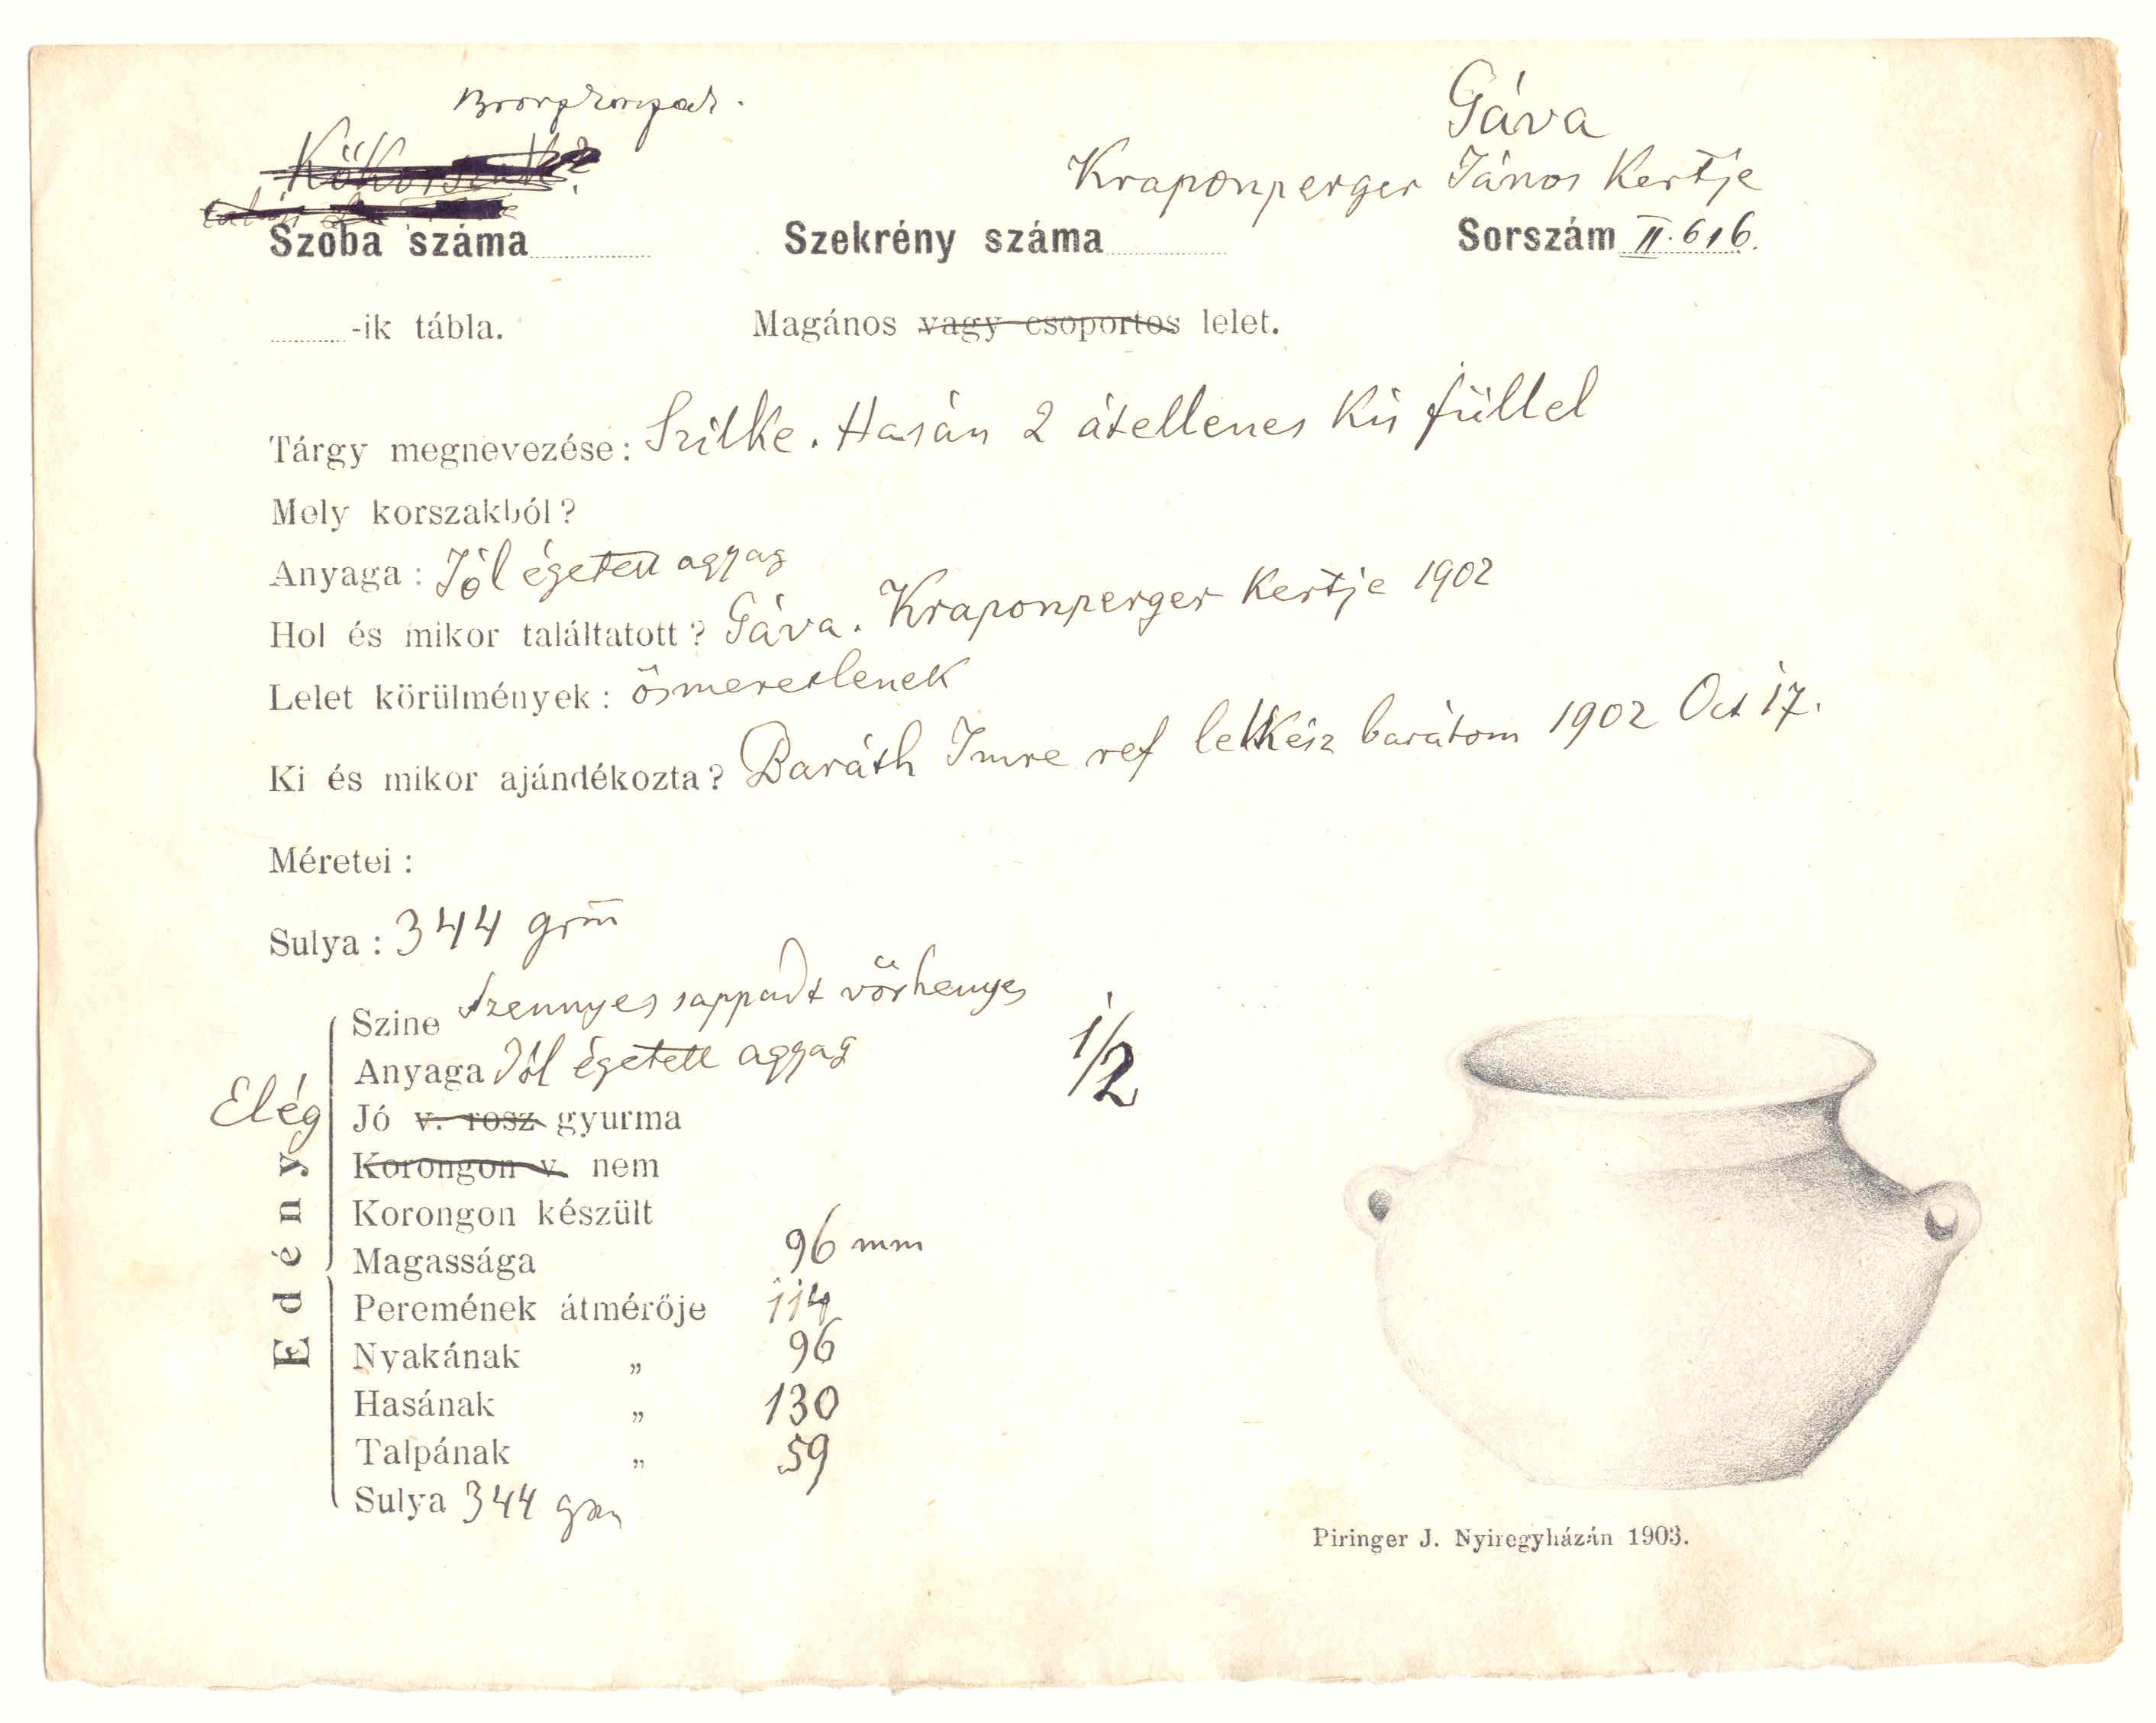 Gáva
Kőkorszak?
Kraponperger János Kertje
Szoba száma Szekrény száma Sorszám II. 616.
-ik tábla. Magános vagy csoportos lelet.
Tárgy megnevezése: Szilke. Hasán 2 átellenes Kis füllel
Mely korszakból?
Anyaga: Jól égetett agyag
Hol és mikor találtatott? Gáva. Kraponperger Kertje 1902
Lelet körülmények: ösmeretlenek
Ki és mikor ajándékozta? Baráth Imre ref lelkész barátom 1902 Oct 17.
Méretei:
Sulya: 344 grm
Szine Szennyes sappadt vörhenyes
Anyaga Jól égetett agyag
1/2
Elég Jó v. rosz gyurma
Korongon v. nem
Korongon készült
Edény
Magassága 96 mm
Peremének átmérője 114
Nyakának „ 96
Hasának „ 130
Talpának „ 59
Sulya 344 grm
Piringer J. Nyiregyházán 1903.